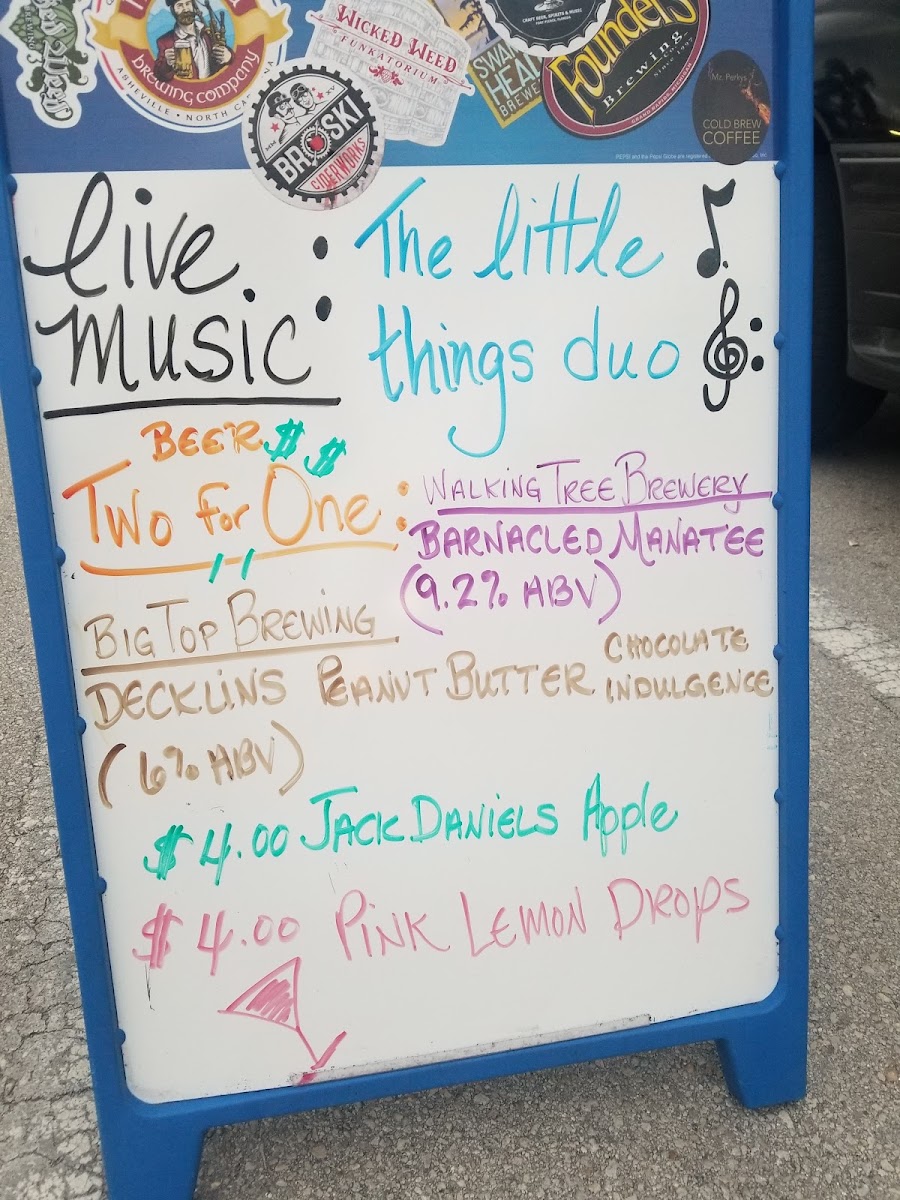 BREWING COMPANY
ASHEVILLE • NORTH CAROLINA
WICKED WEED
FUNKATORIUM
CRAFT BEER, SPIRITS & MUSIC
Founders
Brewing
Since 1997
GRAND RAPIDS, MICHIGAN
Mr. Perkys
COLD BREW
COFFEE
BROSKI
CIDERWORKS
live music :
The little things duo
BEER $ $
Two For One :
WALKING TREE BREWERY
BARNACLED MANATEE
(9.2% ABV)
BIG TOP BREWING
DECKLINS PEANUT BUTTER CHOCOLATE INDULGENCE
(6% ABV)
$4.00 JACK DANIELS Apple
$4.00 PINK LEMON DROPS